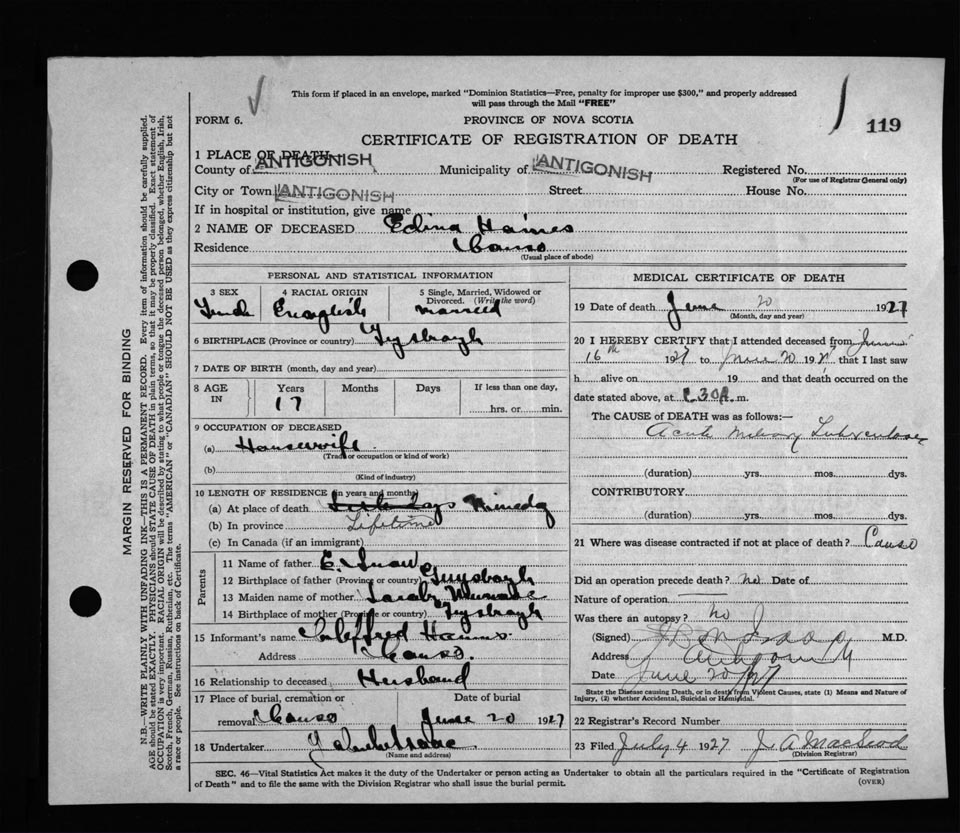 This form if placed in an envelope, marked "Dominion Statistics—Free, penalty for improper use $300," and properly addressed
will pass through the Mail "FREE"
FORM 6.
PROVINCE OF NOVA SCOTIA
119
CERTIFICATE OF REGISTRATION OF DEATH
1 PLACE OF DEATH
County of ANTIGONISH Municipality of ANTIGONISH Registered No.
(For use of Registrar General only)
City or Town ANTIGONISH Street House No.
If in hospital or institution, give name
2 NAME OF DECEASED Edina Haines
Residence Canso
(Usual place of abode)
PERSONAL AND STATISTICAL INFORMATION
3 SEX 4 RACIAL ORIGIN 5 Single, Married, Widowed or Divorced. (Write the word)
English married
6 BIRTHPLACE (Province or country)
7 DATE OF BIRTH (month, day and year)
8 AGE IN Years Months Days If less than one day,
17 hrs. or min.
9 OCCUPATION OF DECEASED
(a) Housewife
(Trade or occupation or kind of work)
(b)
(Kind of industry)
10 LENGTH OF RESIDENCE (in years and months)
(a) At place of death
(b) In province Lifetime
(c) In Canada (if an immigrant)
Parents
11 Name of father E.
12 Birthplace of father (Province or country) Guysboro
13 Maiden name of mother
14 Birthplace of mother (Province or country)
15 Informant's name
Address Canso
16 Relationship to deceased Husband
17 Place of burial, cremation or removal Canso Date of burial June 20 1927
18 Undertaker
(Name and address)
MEDICAL CERTIFICATE OF DEATH
19 Date of death June 20 1927
(Month, day and year)
20 I HEREBY CERTIFY that I attended deceased from June
16th 1927 to June 20 1927 that I last saw
h alive on 19 and that death occurred on the
date stated above, at m.
The CAUSE of DEATH was as follows:—
Acute Miliary Tuberculosis
(duration) yrs. mos. dys.
CONTRIBUTORY
(duration) yrs. mos. dys.
21 Where was disease contracted if not at place of death? Canso
Did an operation precede death? no Date of
Nature of operation
Was there an autopsy? no
(Signed) M.D.
Address Antigonish
Date June 20/27
State the Disease causing Death, or in death from Violent Causes, state (1) Means and Nature of
Injury, (2) whether Accidental, Suicidal or Homicidal.
22 Registrar's Record Number
23 Filed July 4 1927 J. A MacLeod
(Division Registrar)
SEC. 46—Vital Statistics Act makes it the duty of the Undertaker or person acting as Undertaker to obtain all the particulars required in the "Certificate of Registration
of Death" and to file the same with the Division Registrar who shall issue the burial permit. (OVER)
MARGIN RESERVED FOR BINDING
N.B.—WRITE PLAINLY WITH UNFADING INK—THIS IS A PERMANENT RECORD. Every item of information should be carefully supplied.
AGE should be stated EXACTLY. PHYSICIANS should STATE CAUSE OF DEATH in plain terms, so that it may be properly classified. Exact statement of
OCCUPATION is very important. RACIAL ORIGIN will be described by stating to what people or tongue the deceased person belonged, whether English, Irish,
Scotch, French, German, Russian, Ruthenian, etc. The terms "AMERICAN" or "CANADIAN" SHOULD NOT BE USED as they express citizenship but not
a race or people. See instructions on back of Certificate.